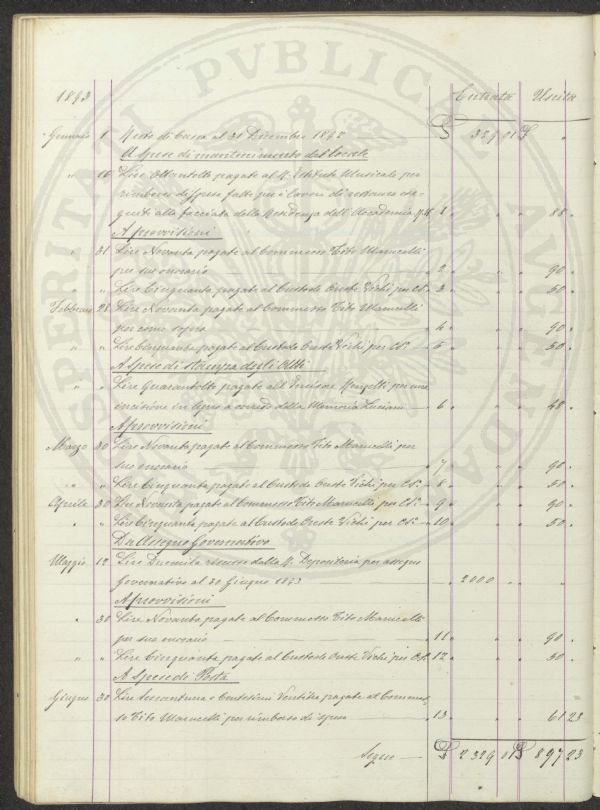 1893 Entrata Uscita
Gennaio 1 Resto di Cassa al 31 Dicembre 1892 £ 329 01 £ "
A Spese di mantenimento del locale
" 16 Lire Ottantotto pagate al R. Istituto Musicale per
rimborso di spese fatte per i lavori di restauro ese-
guiti alla facciata della Residenza dell'Accademia 1 " " " 88 "
A provvisioni
" 31 Lire Novanta pagate al Commesso Tito Marucelli
per suo onorario 2 " " " 90 "
" " Lire Cinquanta pagate al Custode Oreste Vichi per Cº 3 " " " 50 "
Febbraio 28 Lire Novanta pagate al Commesso Tito Marucelli
per come sopra 4 " " " 90 "
" " Lire Cinquanta pagate al Custode Oreste Vichi per Cº 5 " " " 50 "
A Spese di stampa degli Atti
" " Lire Quarantotto pagate all'Incisore per una
incisione in legno a corredo della Memoria Luciani 6 " " " 48 "
A provvisioni
Marzo 30 Lire Novanta pagate al Commesso Tito Marucelli per
suo onorario 7 " " " 90 "
" " Lire Cinquanta pagate al Custode Oreste Vichi per Cº 8 " " " 50 "
Aprile 30 Lire Novanta pagate al Commesso Tito Marucelli per Cº 9 " " " 90 "
" " Lire Cinquanta pagate al Custode Oreste Vichi per Cº 10 " " " 50 "
Da Assegno Governativo
Maggio 12 Lire Duemila riscosse dalla R. Depositeria per assegno
Governativo al 30 Giugno 1893 " 2000 " " " "
A provvisioni
" 30 Lire Novanta pagate al Commesso Tito Marucelli
per suo onorario 11 " " " 90 "
" " Lire Cinquanta pagate al Custode Oreste Vichi per Cº 12 " " " 50 "
A spese di Posta
Giugno 30 Lire Sessantuna e Centesimi Ventitre pagate al Commes-
so Tito Marucelli per rimborso di spese 13 " " " 61 23
Segue £ 2329 01 £ 897 23
PROSPERITATI PVBLICAE AVGENDAE